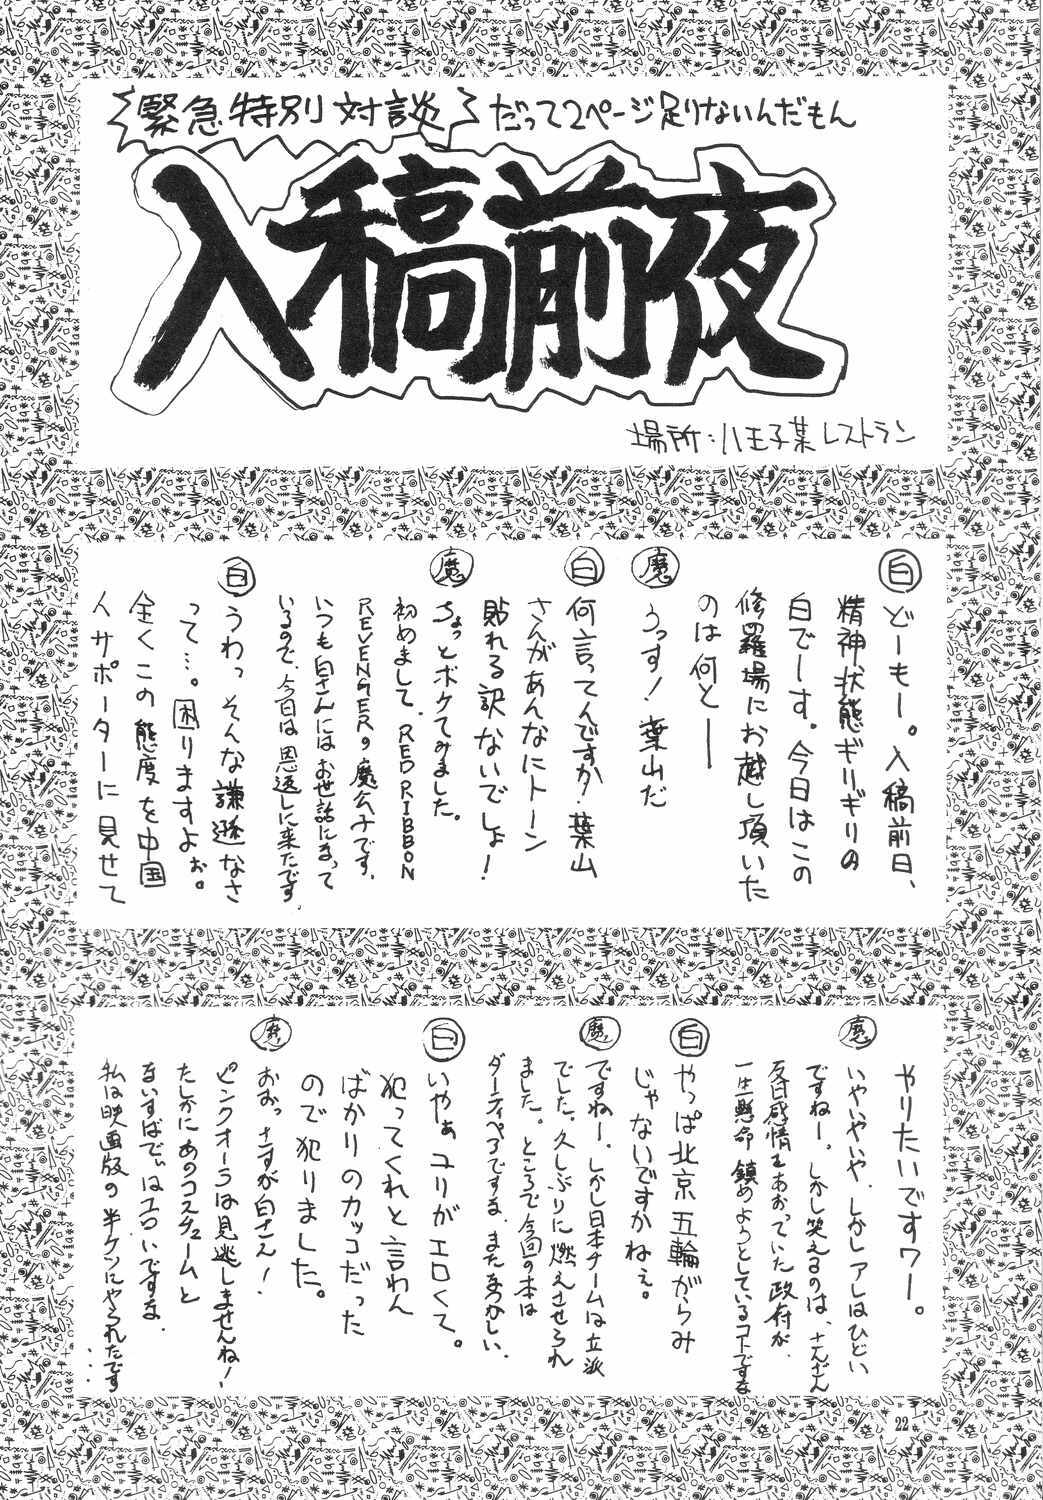 緊急特別対談
だって2ページ足りないんだもん
入稿前夜
場所:八王子某レストラン
白 どーもー。入稿前日、
精神状態ギリギリの
白でーす。今日はこの
修羅場にお越し頂いた
のは何とー
魔 うっす!葉山だ
白 何言ってんですか!葉山
さんがあんなにトーン
貼れる訳ないでしょ!
魔 ちょっとボケてみました。
初めまして、RED RIBBON
REVENGERの魔公子です。
いつも白さんにはお世話になって
いるので、今日は恩返しに来たです。
白 うわっそんな謙遜なさ
って…。困りますよぉ。
全くこの態度を中国
人サポーターに見せて
やりたいですワー。
魔 いやいやいや、しかしアレはひどい
ですねー。しかし笑えるのは、さんざん
反日感情をあおっていた政府が、
一生懸命鎮めようとしているコトですな
白 やっぱ北京五輪がらみ
じゃないですかねぇ。
魔 ですねー。しかし日本チームは立派
でした。久しぶりに燃えさせられ
ました。ところで今回の本は
ダーティペアですな、またなつかしい。
白 いやぁユリがエロくて。
犯ってくれと言わん
ばかりのカッコだった
ので犯りました。
魔 おおっさすが白さん!
ピンクオーラは見逃しませんね!
たしかにあのコスチュームと
ないすばでぃはエロいですな。
私は映画版の半ケツにやられたです
…
22